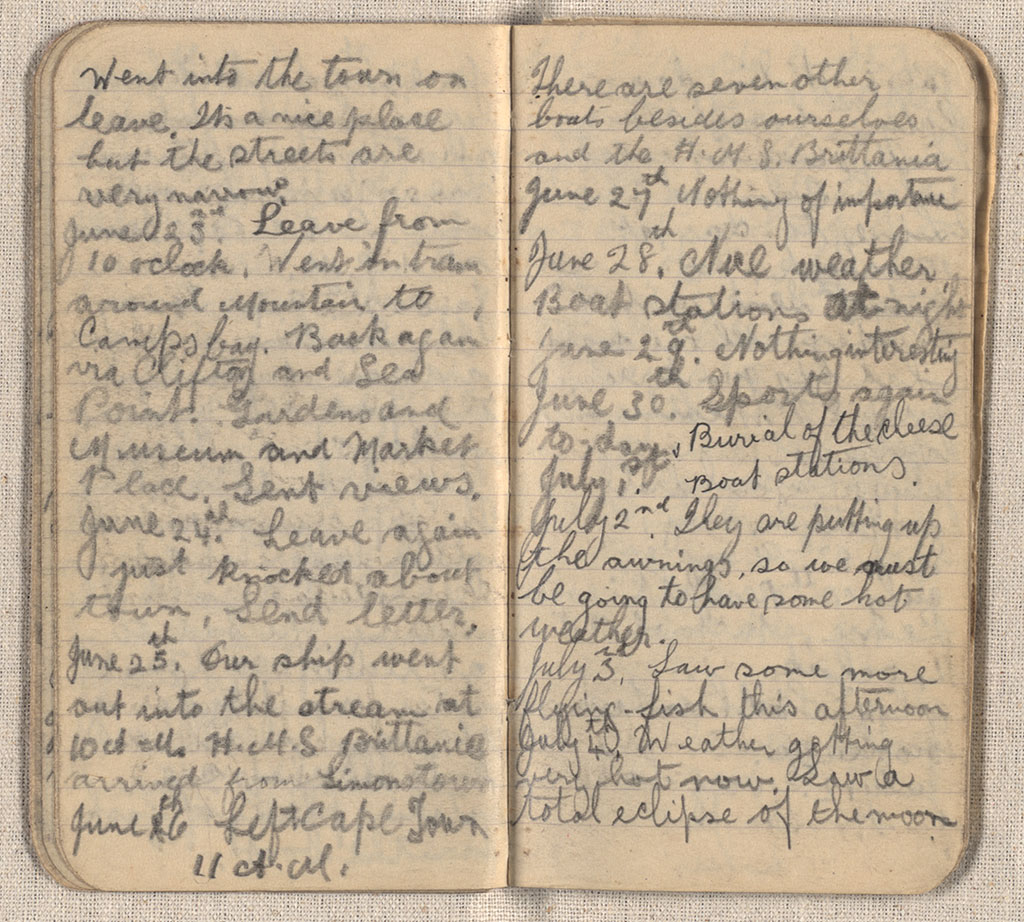 Went into the town on
leave. Its a nice place
but the streets are
very narrow.
June 23rd. Leave from
10 oclock. Went in tram
around Mountain to
Camps bay. Back again
via Clifton and Sea
Point. Gardens and
Museum and Market
Place. Sent views.
June 24th. Leave again
just knocked about
town, Send letter.
June 25th. Our ship went
out into the stream at
10 A.M. H.M.S Brittania
arrived from Simonstown
June 26th Left Cape Town
11 A.M.
There are seven other
boats besides ourselves
and the H.M.S. Brittania
June 27th Nothing of importance
June 28th. Nice weather.
Boat stations at night
June 29th. Nothing interesting
June 30th. Sports again
to-day, Burial of the cheese
July 1st Boat stations.
July 2nd They are putting up
the awnings, so we must
be going to have some hot
weather.
July 3rd, Saw some more
flying-fish this afternoon
July 4th, Weather getting
very hot now. Saw a
total eclipse of the moon